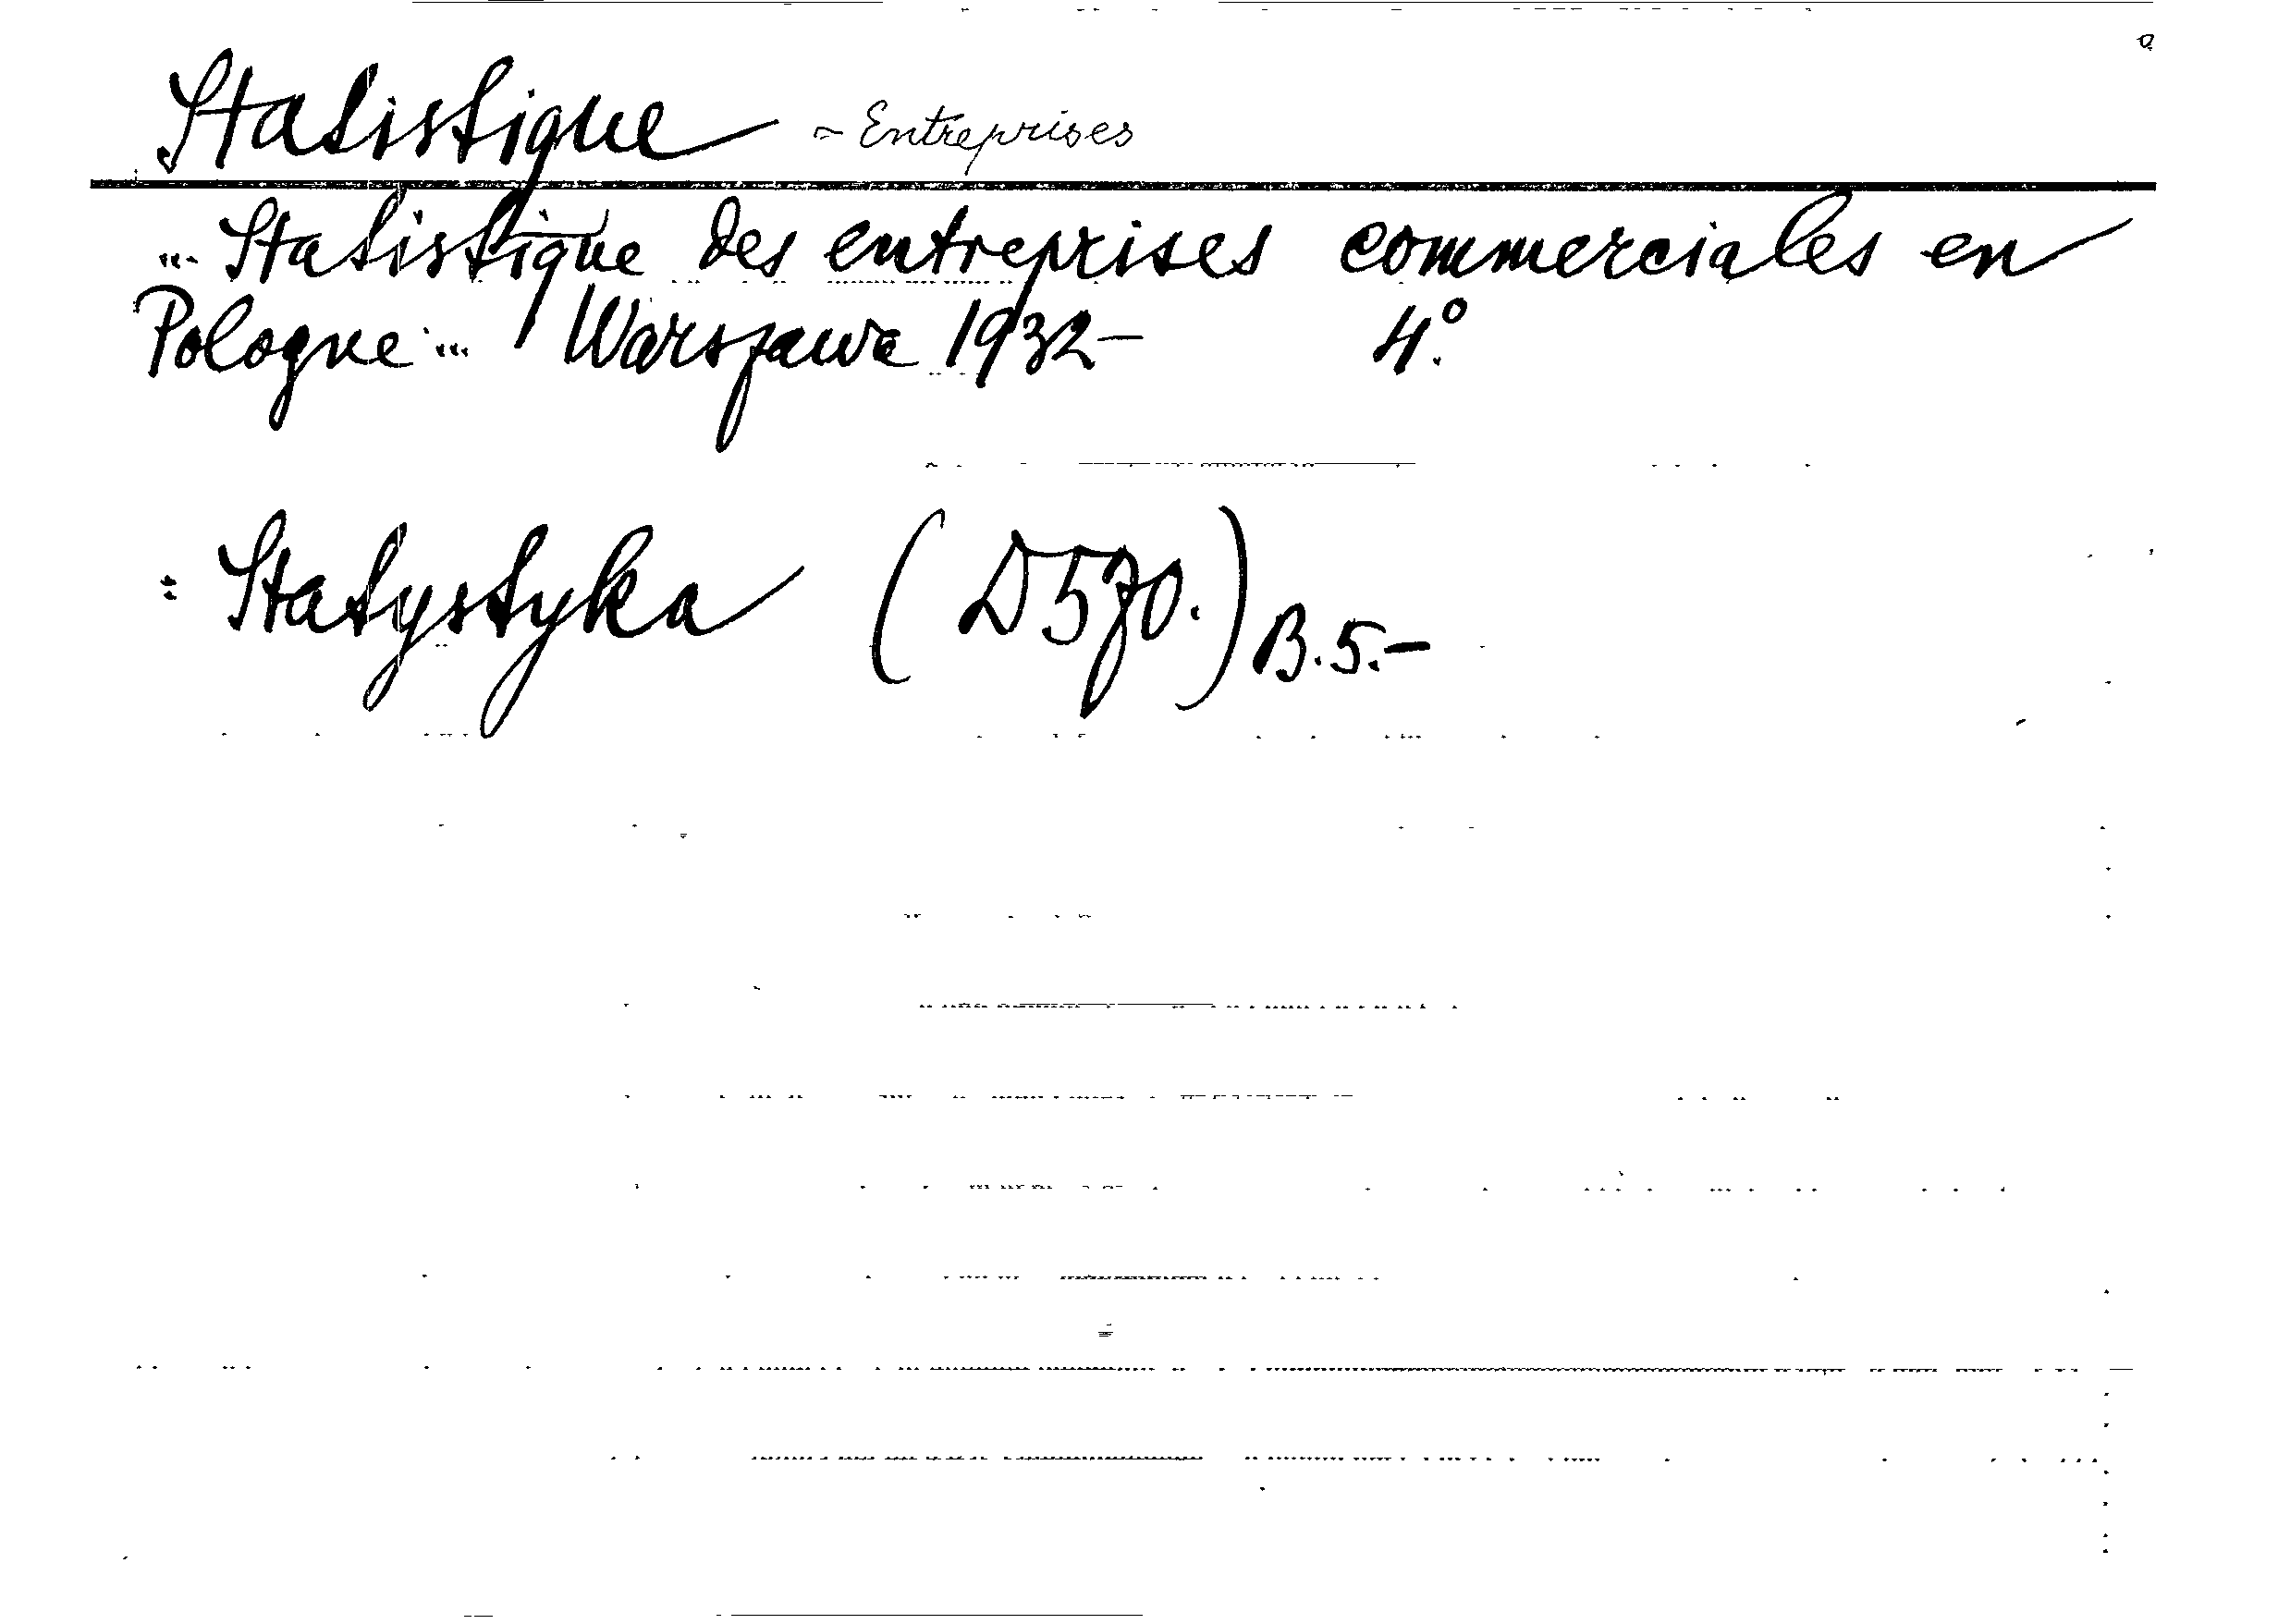 Statistique - Entreprises
... Statistique des entreprises commerciales en
Pologne ... Warszawa 1932- 4°.
= Statystyka (D570.) B.5.-